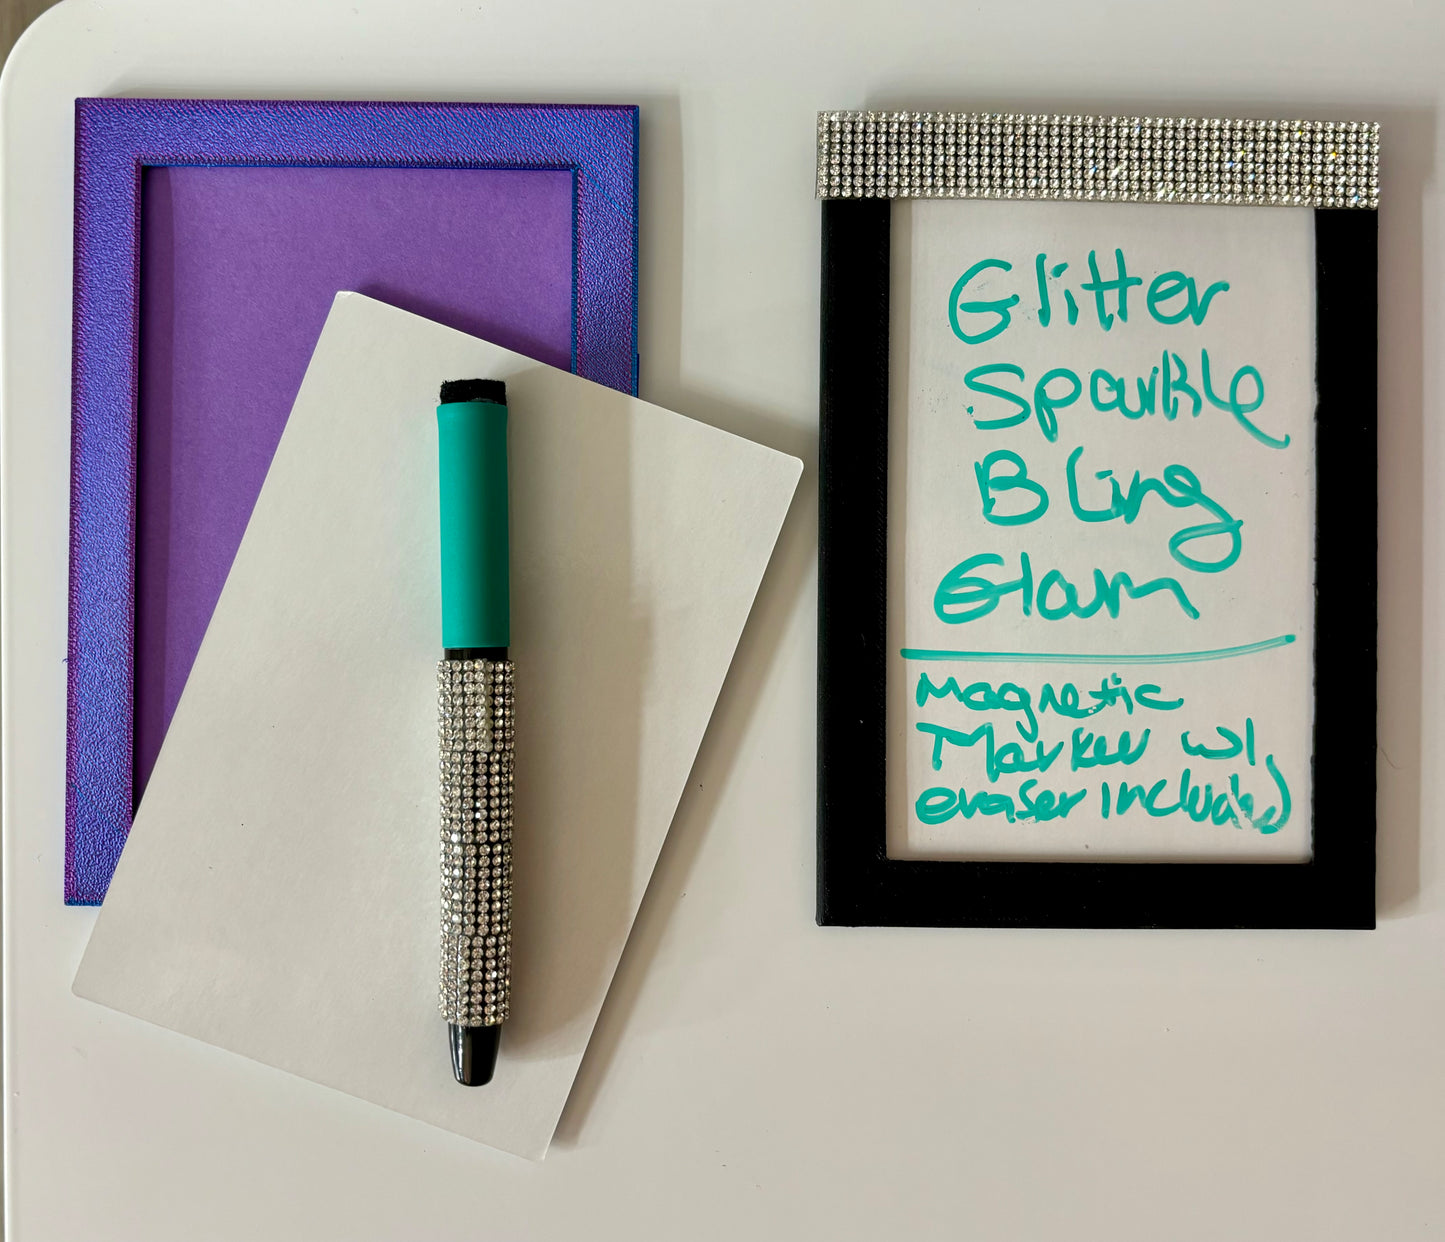 Glitter
Sparkle
Bling
Glam
Magnetic
Marker w/
eraser included